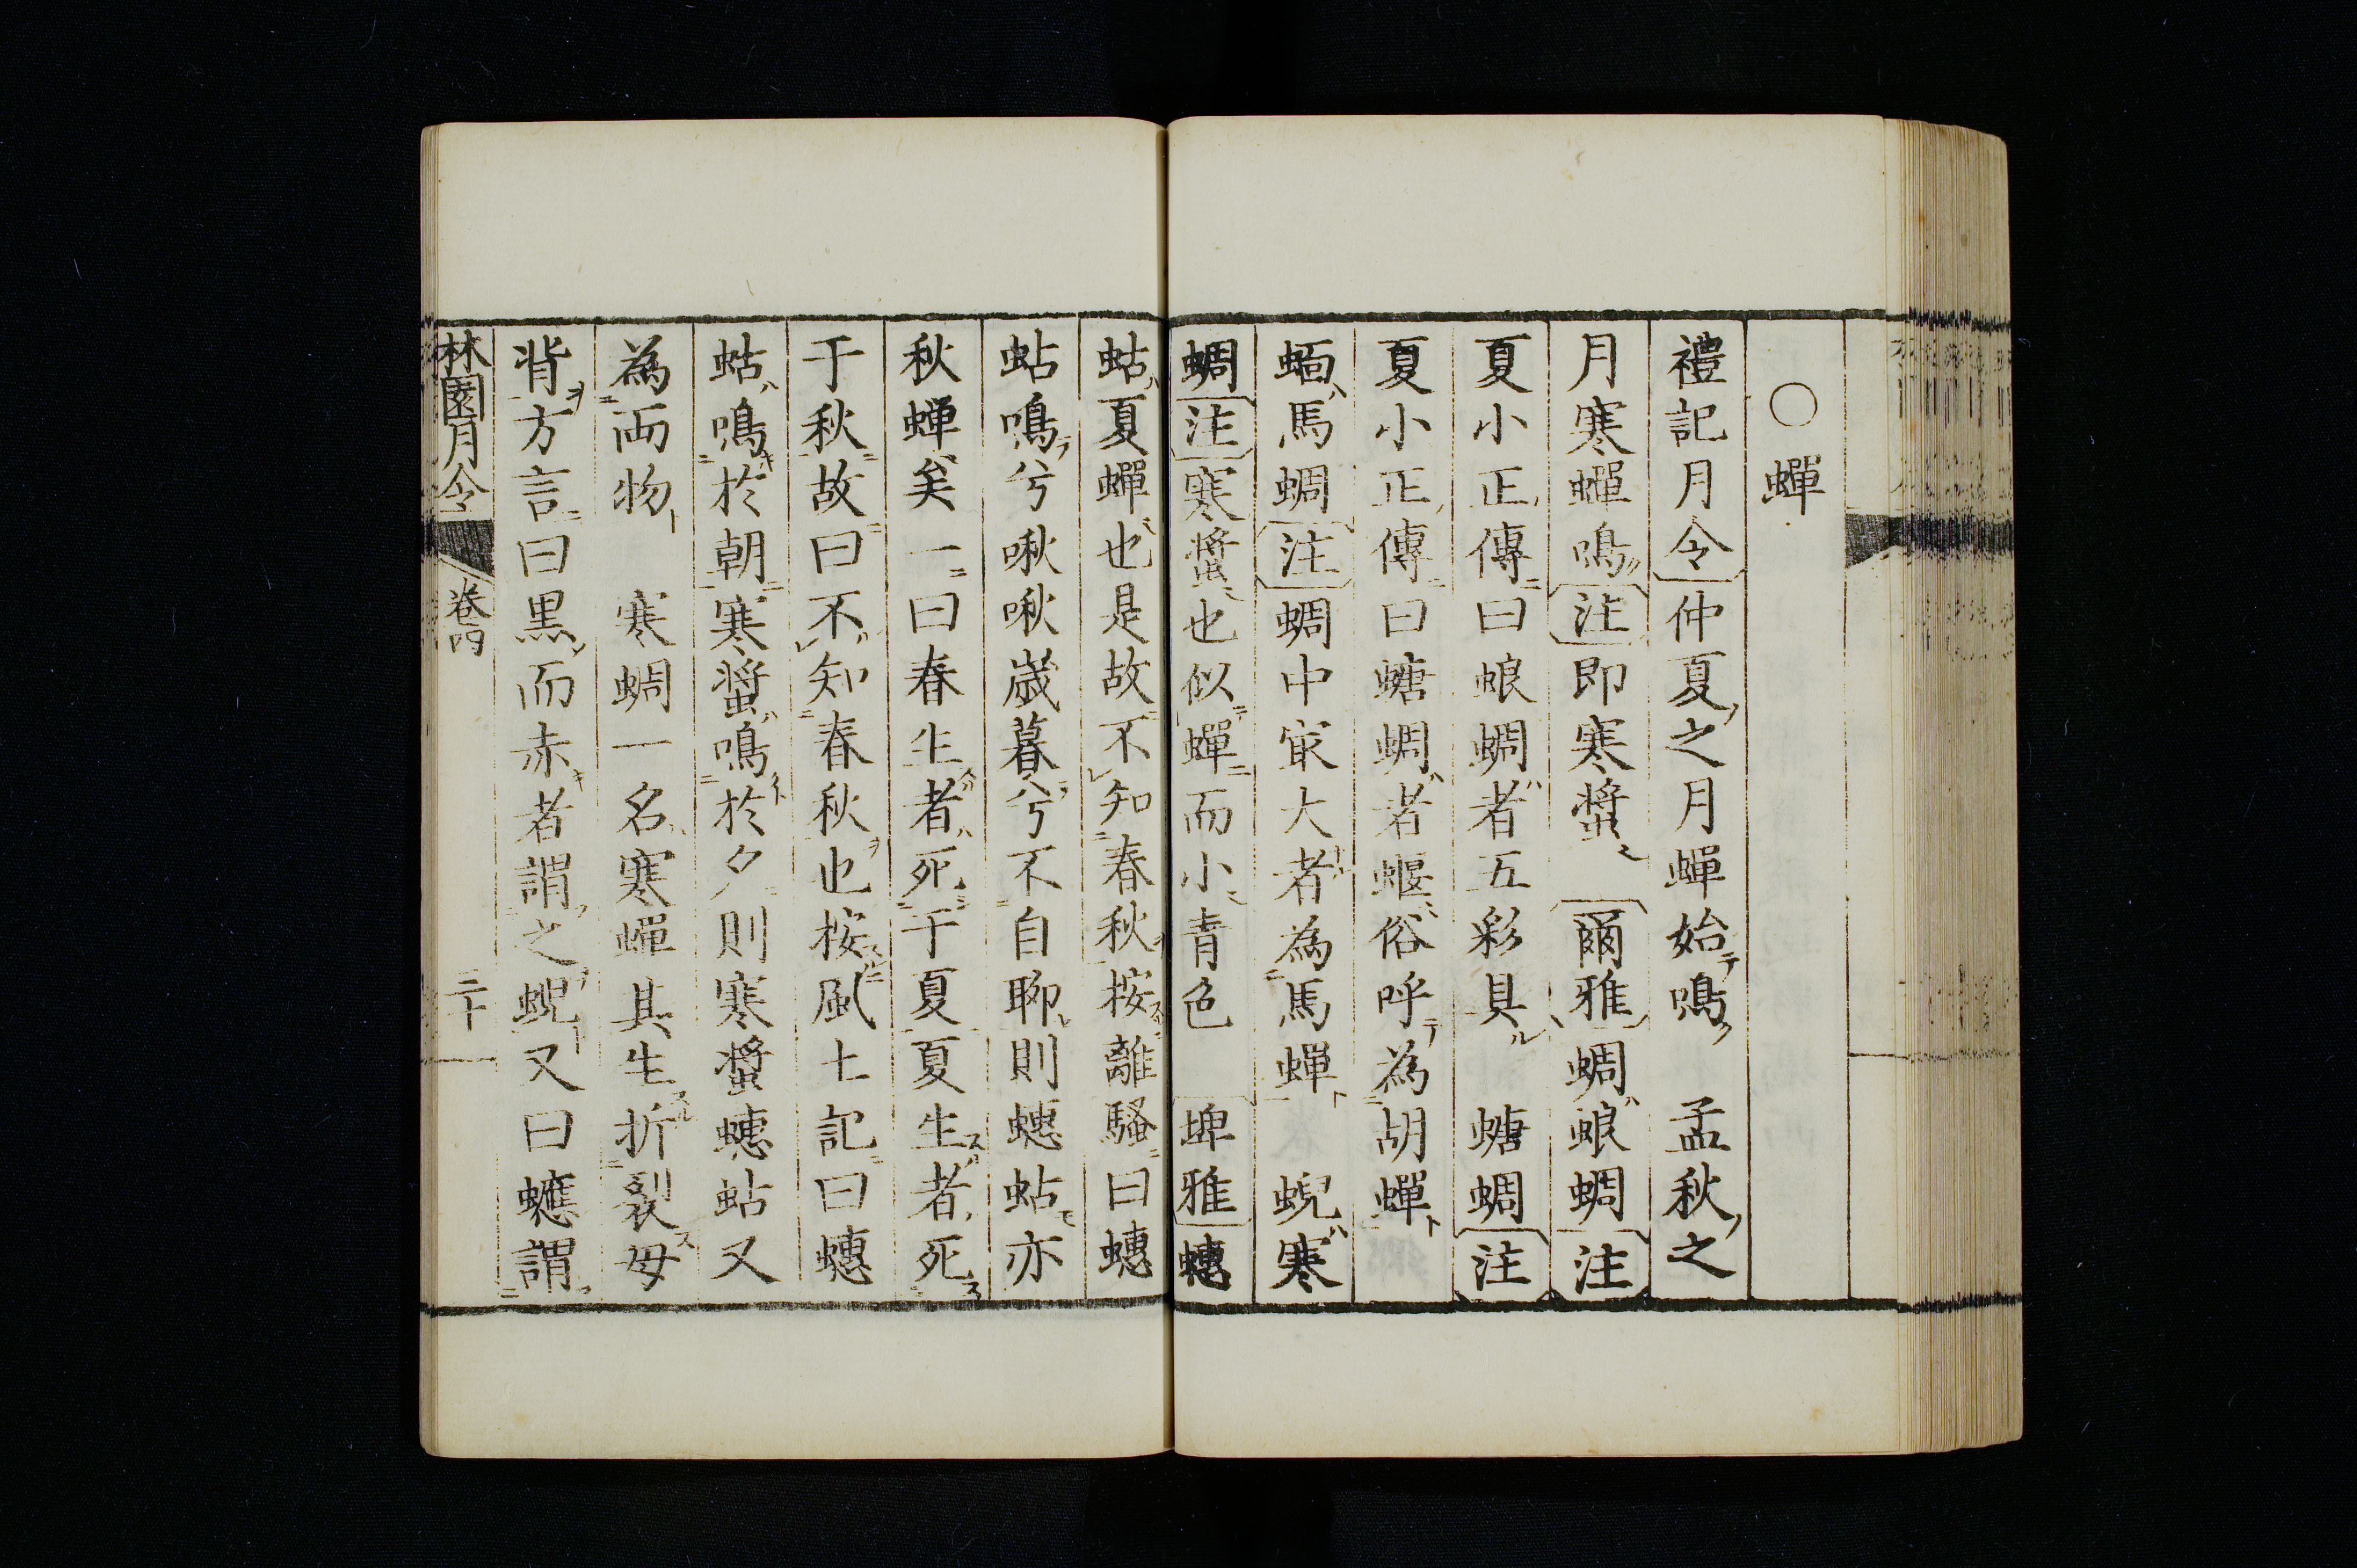 ○蟬
禮記月令仲夏之月蟬始鳴　孟秋之
月寒蟬鳴注即寒螿　爾雅蜩蜋蜩注
夏小正傳曰蜋蜩者五彩具　螗蜩注
夏小正傳曰螗蜩者蝘俗呼為胡蟬
蝒馬蜩注蜩中最大者為馬蟬　蜺寒
蜩注寒螿也似蟬而小青色　埤雅蟪
蛄夏蟬也是故不知春秋按離騷曰蟪
蛄鳴兮啾啾歳暮兮不自聊則蟪蛄亦
秋蟬矣一曰春生者死于夏夏生者死
于秋故曰不知春秋也按風土記曰蟪
蛄鳴於朝寒螿鳴於夕則寒螿蟪蛄又
為兩物　寒蜩一名寒蟬其生折裂母
背方言曰黒而赤者謂之蜺又曰蟅謂
林園月令　卷四　二十